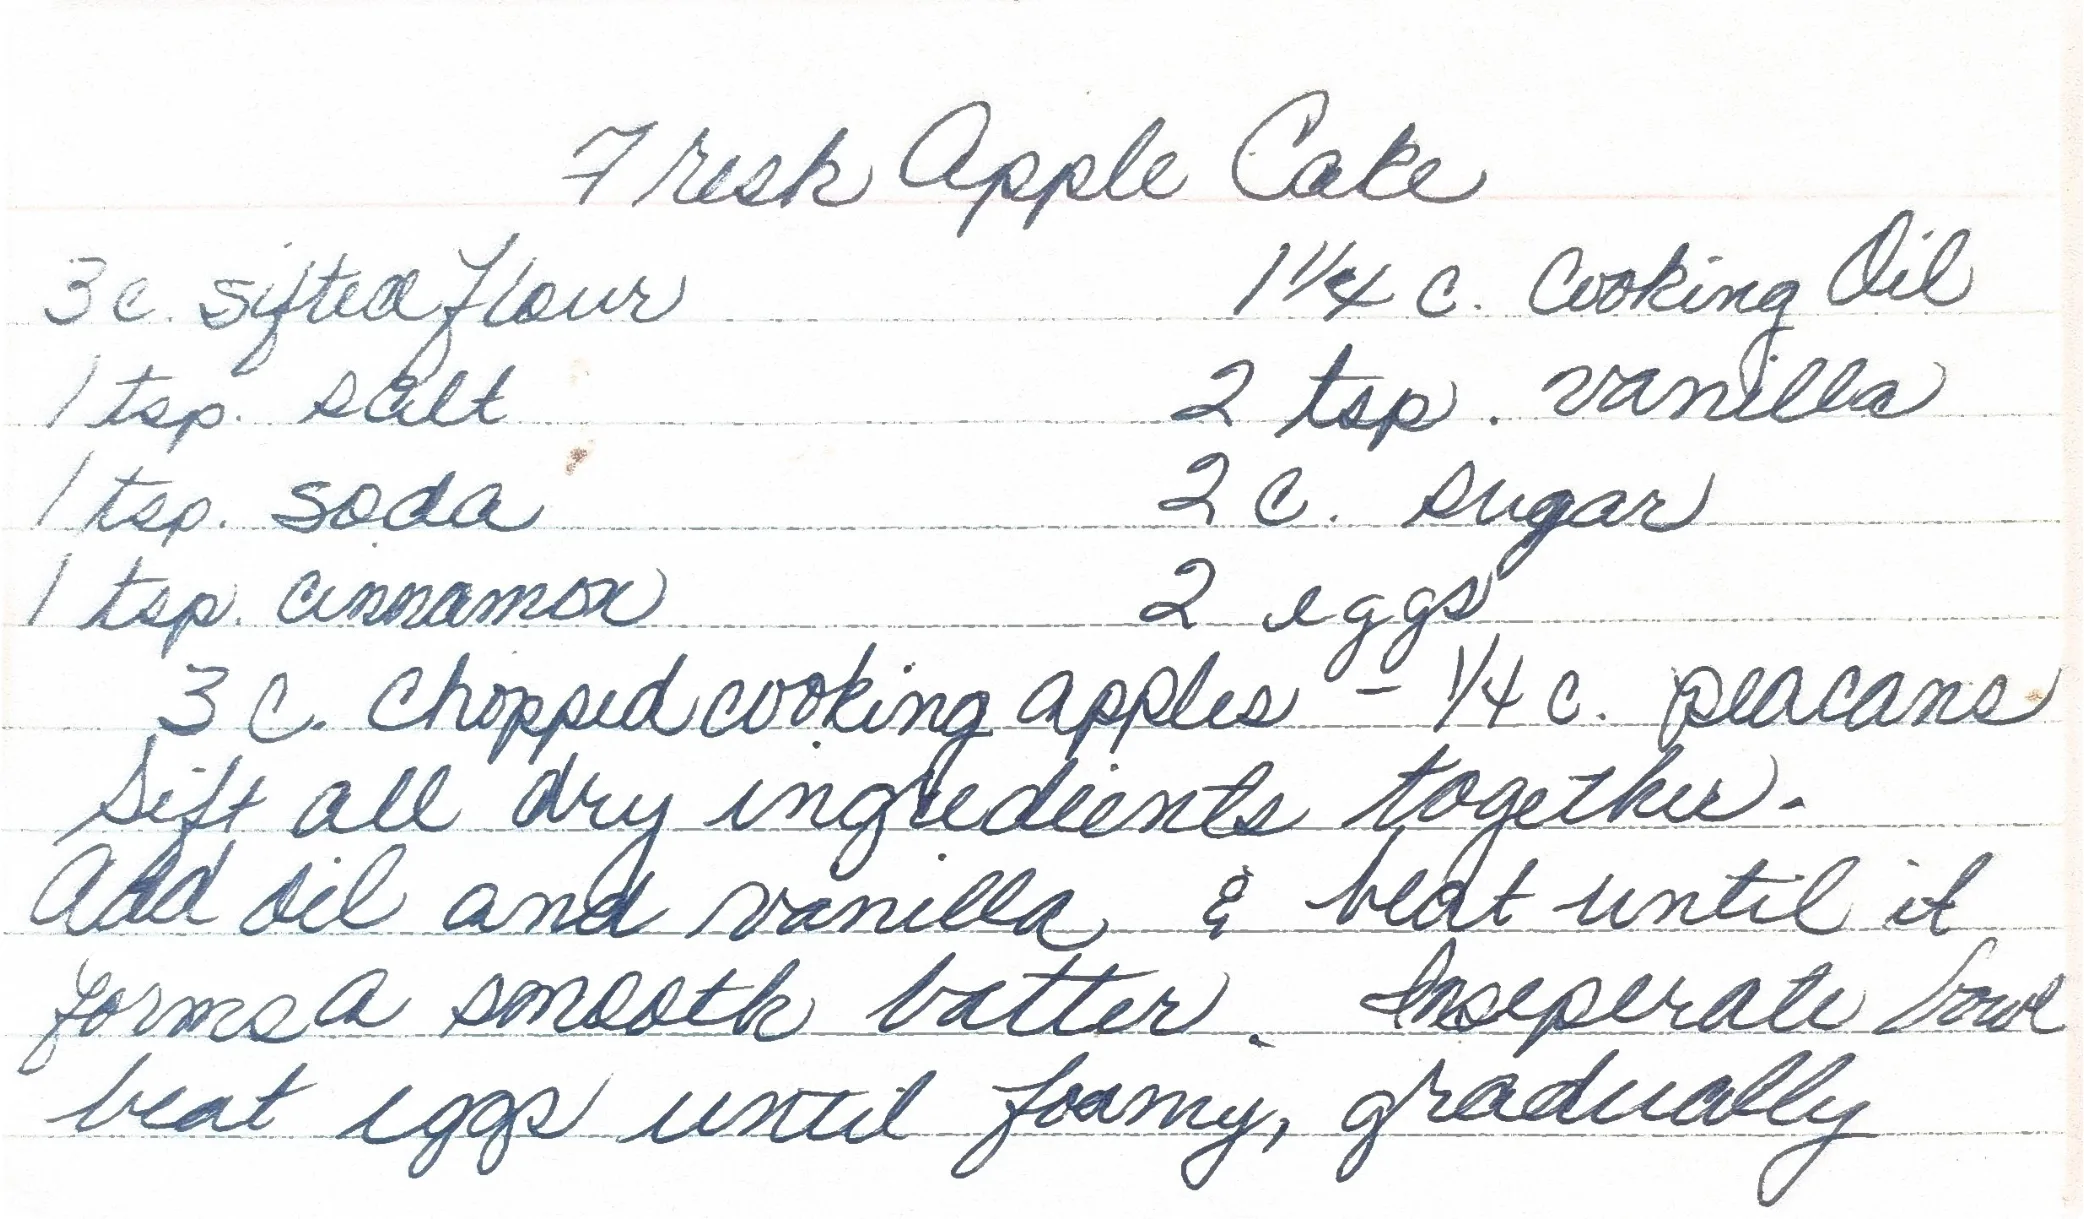 Fresh Apple Cake
3 c. sifted flour 1 1/4 c. Cooking Oil
1 tsp. salt 2 tsp. vanilla
1 tsp. soda 2 c. sugar
1 tsp. cinnamon 2 eggs
3 c. chopped cooking apples - 1/4 c. peacans
Sift all dry ingredients together.
Add oil and vanilla & beat until it
forms a smooth batter. In seperate bowl
beat eggs until foamy, gradually